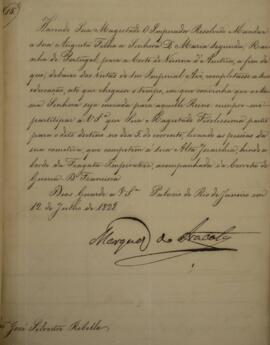 Havendo Sua Magestade O Imperador Resolvido Mandar
a Sua Augusta Filha a Senhora D. Maria Segunda, Rai-
nha de Portugal, para a Corte de Vienna d'Austria, a fim de
que, debaixo das vistas de seu Imperial Avô, completasse a sua
educação, até que chegasse o tempo, em que convinha que a mesma
Senhora seja enviada para aquelle Reino: cumpre-me
participar a V. S.ª que Sua Magestade Fidelissima partio
para o dito destino no dia 5 do corrente, levando as pessoas da
sua comitiva, que competem a sua Alta Jerarchia, hindo a
bordo da Fragata Imperatriz, acompanhada da Corveta de
Guerra D. Francisca
Deos Guarde a V. S.ª Palacio do Rio de Janeiro em
12 de Julho de 1828
Marquez do Aracaty
José Silvestre Rebello